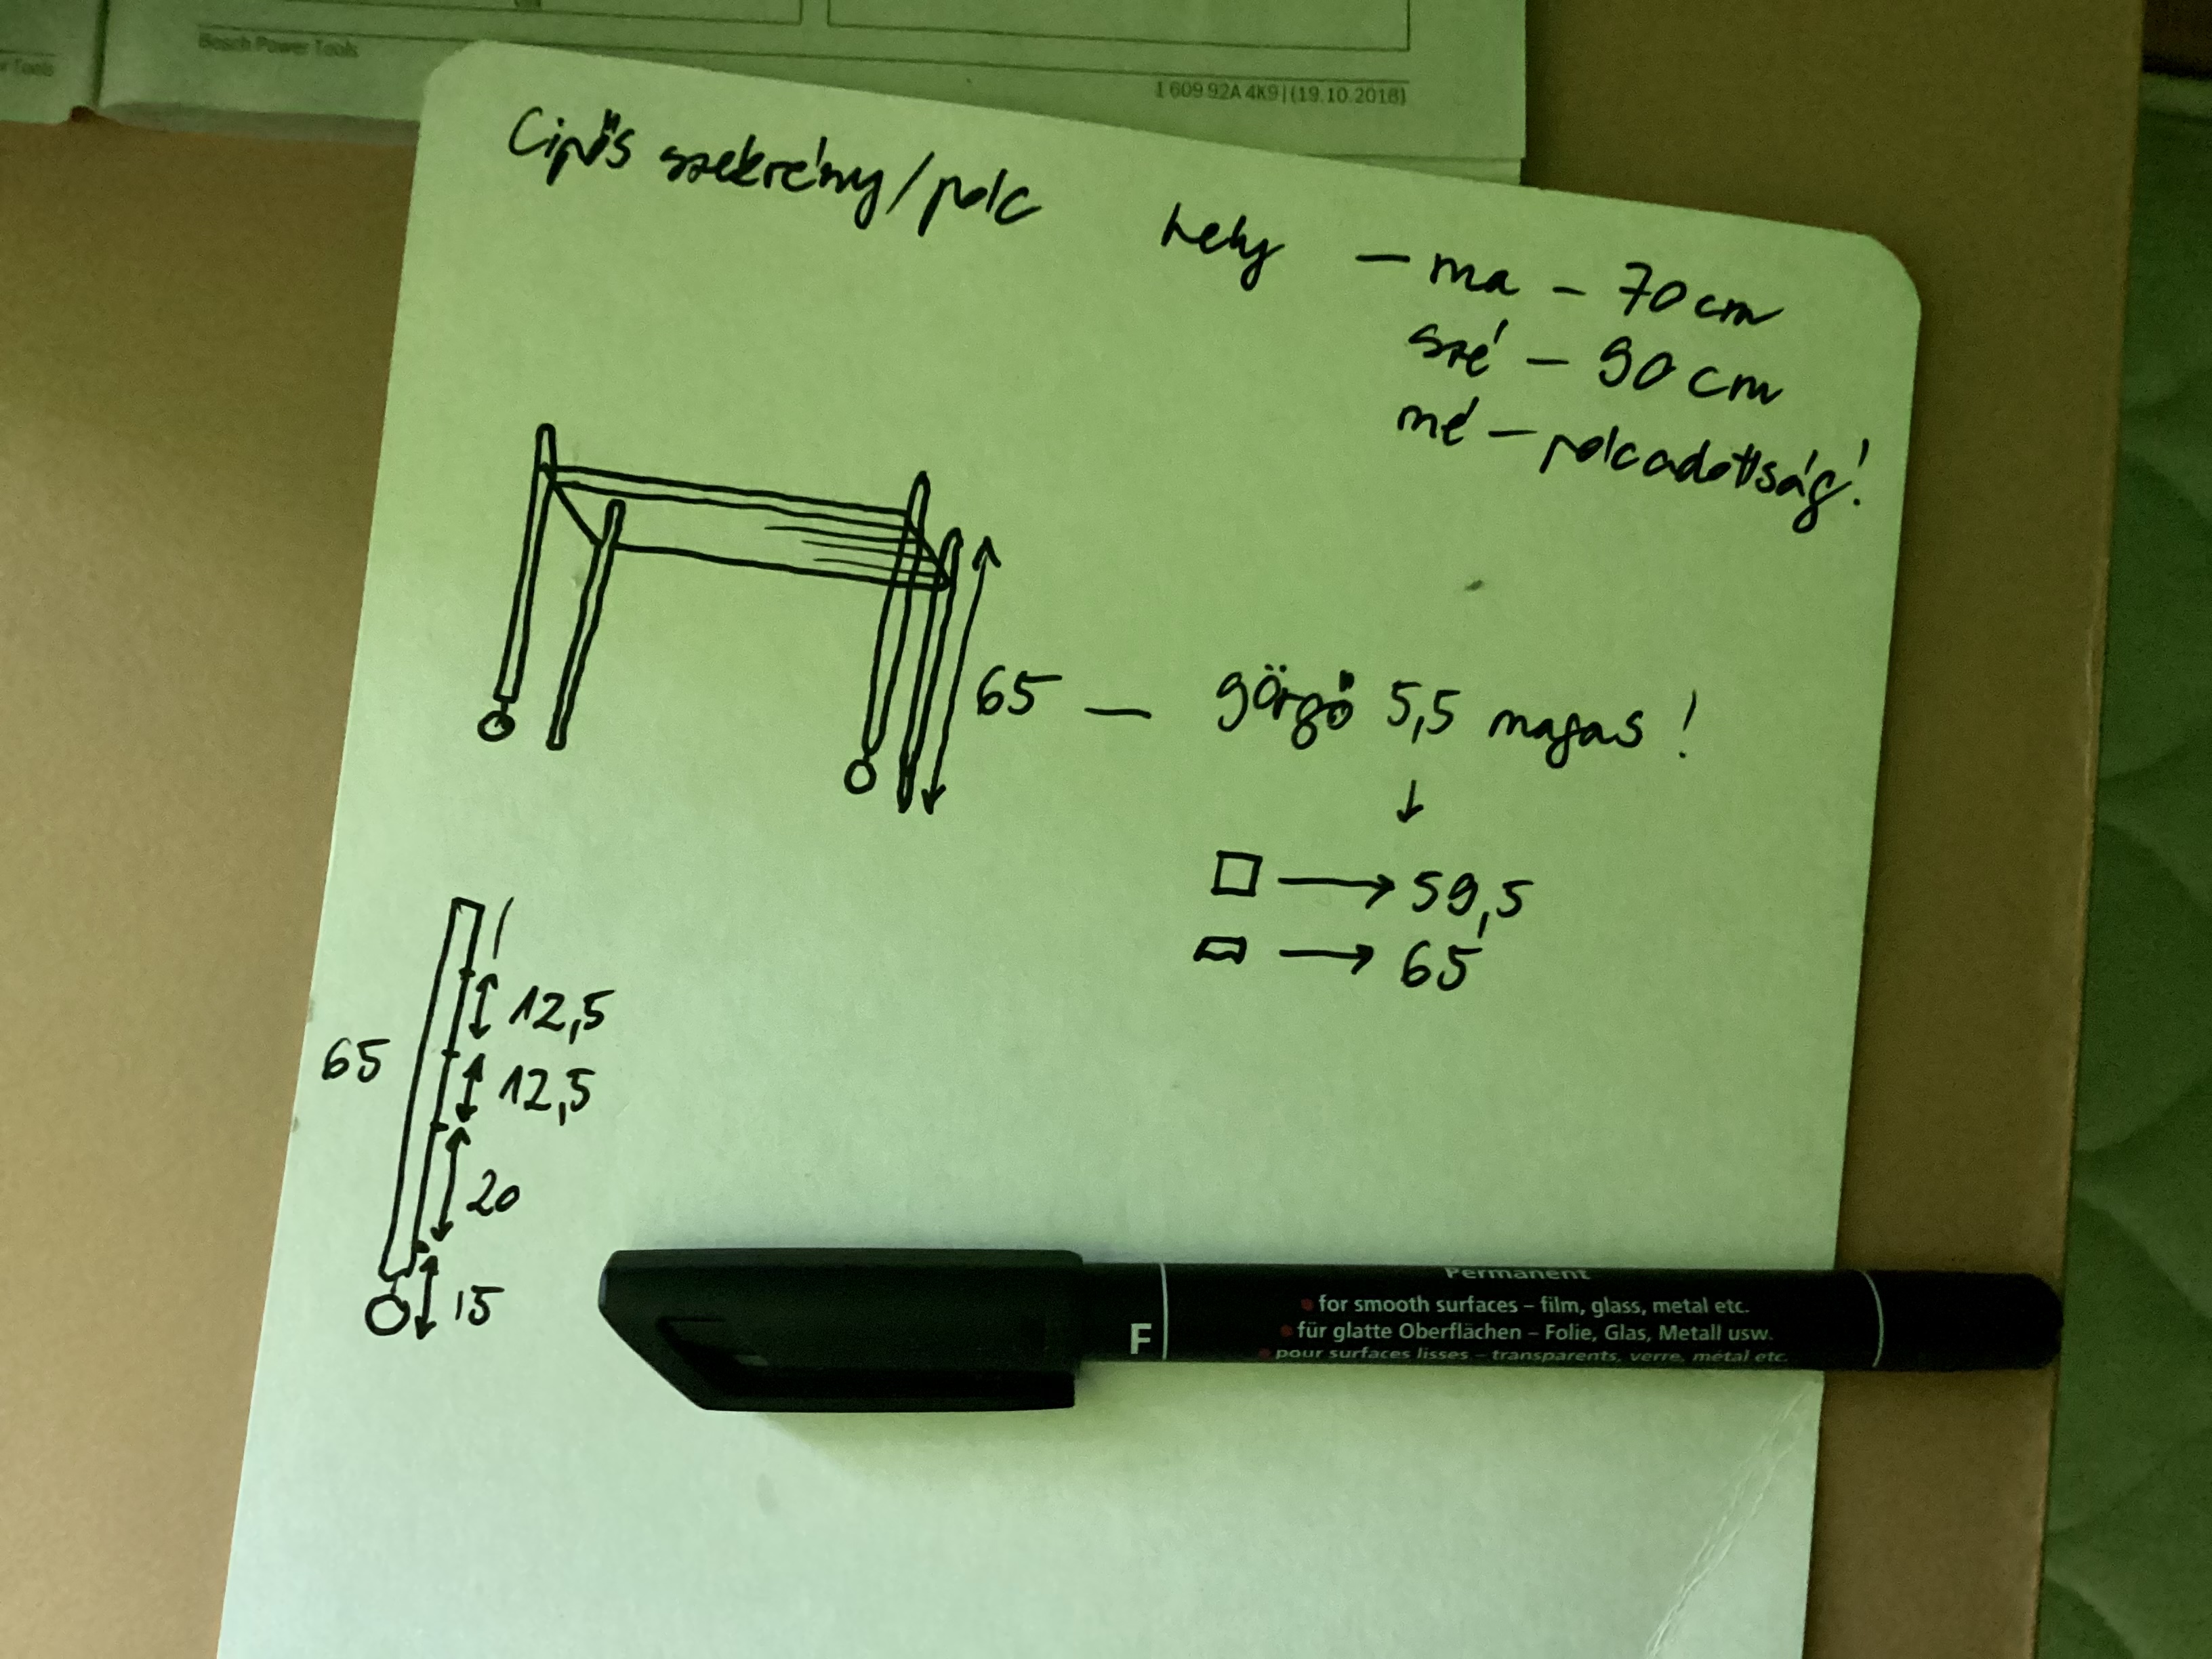 Bosch Power Tools
r Tools
1 609 92A 4K9 | (19.10.2016)
Cipős szekrény/polc hely – ma – 70 cm
szé – 90 cm
mé – polcadottság!
65 — görgő 5,5 magas!
↓
□ → 59,5
→ 65
65
12,5
12,5
20
15
Permanent
F
• for smooth surfaces – film, glass, metal etc.
• für glatte Oberflächen – Folie, Glas, Metall usw.
• pour surfaces lisses – transparents, verre, métal etc.